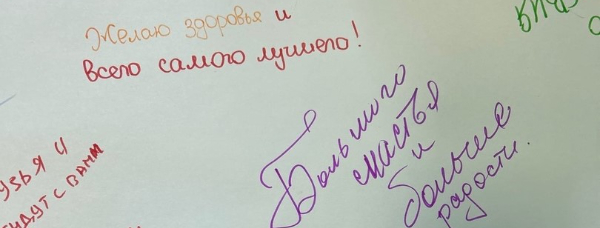 Желаю здоровья и
всего самого лучшего!
Большого
счастья
и
больше
радости.
УЗЬЯ И
БУДУТ С ВАМИ